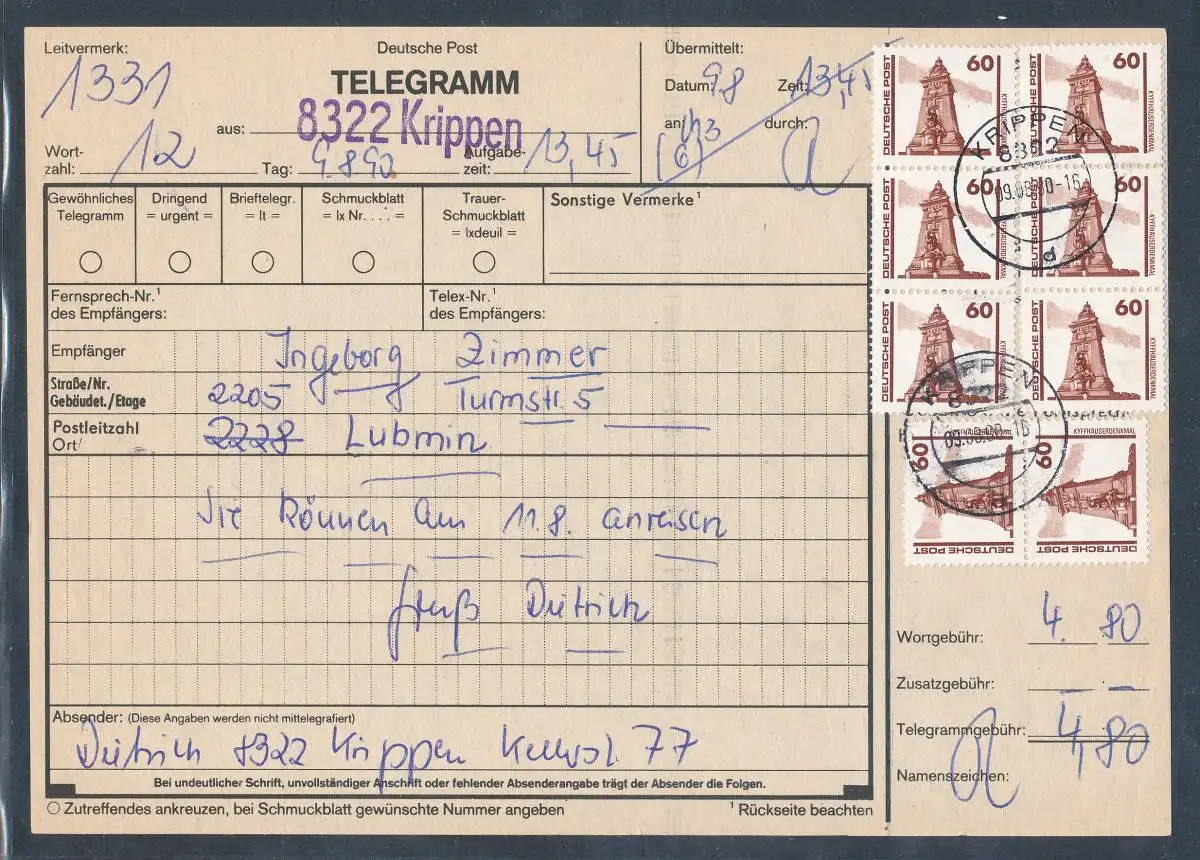 Leitvermerk:
1331
Deutsche Post
TELEGRAMM
aus: 8322 Krippen
Wort-
zahl: 12
Tag: 9.8.90.
Aufgabe-
zeit: 13,45
Übermittelt:
Datum: 9.8 Zeit: 13,45
an: durch:
Gewöhnliches
Telegramm
Dringend
= urgent =
Brieftelegr.
= lt =
Schmuckblatt
= lx Nr. . . . =
Trauer-
Schmuckblatt
= lxdeuil =
Sonstige Vermerke¹
Fernsprech-Nr.¹
des Empfängers:
Telex-Nr.¹
des Empfängers:
Empfänger Ingeborg Zimmer
Straße/Nr.
Gebäudet./Etage
2205 Turmstr. 5
Postleitzahl
Ort/
2228 Lubmin
Sie können am 11.8. anreisen
Gruß Dietrich
Absender: (Diese Angaben werden nicht mittelegrafiert)
Dietrich 8322 Krippen 77
Bei undeutlicher Schrift, unvollständiger Anschrift oder fehlender Absenderangabe trägt der Absender die Folgen.
Zutreffendes ankreuzen, bei Schmuckblatt gewünschte Nummer angeben
¹ Rückseite beachten
DEUTSCHE POST 60 KYFFHÄUSERDENKMAL
DEUTSCHE POST 60 KYFFHÄUSERDENKMAL
DEUTSCHE POST 60
DEUTSCHE POST 60 KYFFHÄUSERDENKMAL
DEUTSCHE POST 60
DEUTSCHE POST 60 KYFFHÄUSERDENKMAL
KRIPPEN
8322
09.08.90-16
d
KRIPPEN
09.08.90-16
60 KYFFHÄUSERDENKMAL DEUTSCHE POST
60 KYFFHÄUSERDENKMAL DEUTSCHE POST
Wortgebühr: 4. 80
Zusatzgebühr: — —
Telegrammgebühr: 4,80
Namenszeichen: